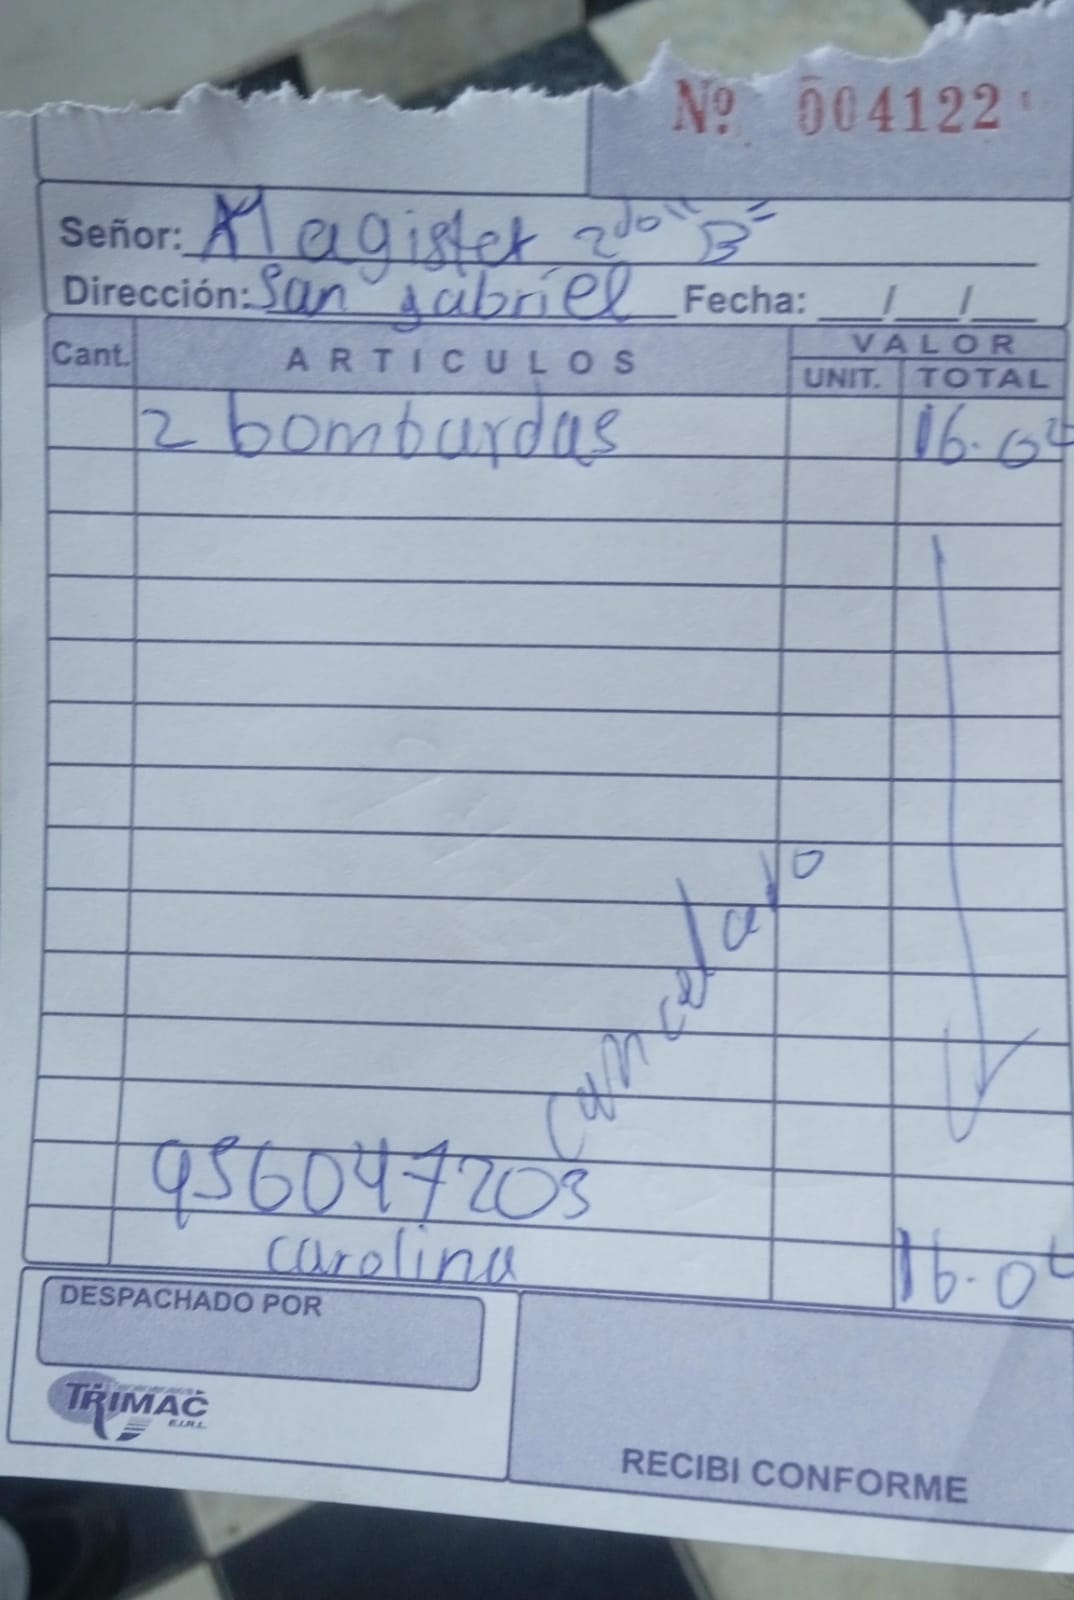 Nº 004122
Señor: Magister 2do "B"
Dirección: San gabriel Fecha: __/__/__
Cant. ARTICULOS VALOR
UNIT. TOTAL
2 bombardas 16.00
cancelado
956047203
carolina 16.00
DESPACHADO POR
TRIMAC
E.I.R.L.
RECIBI CONFORME